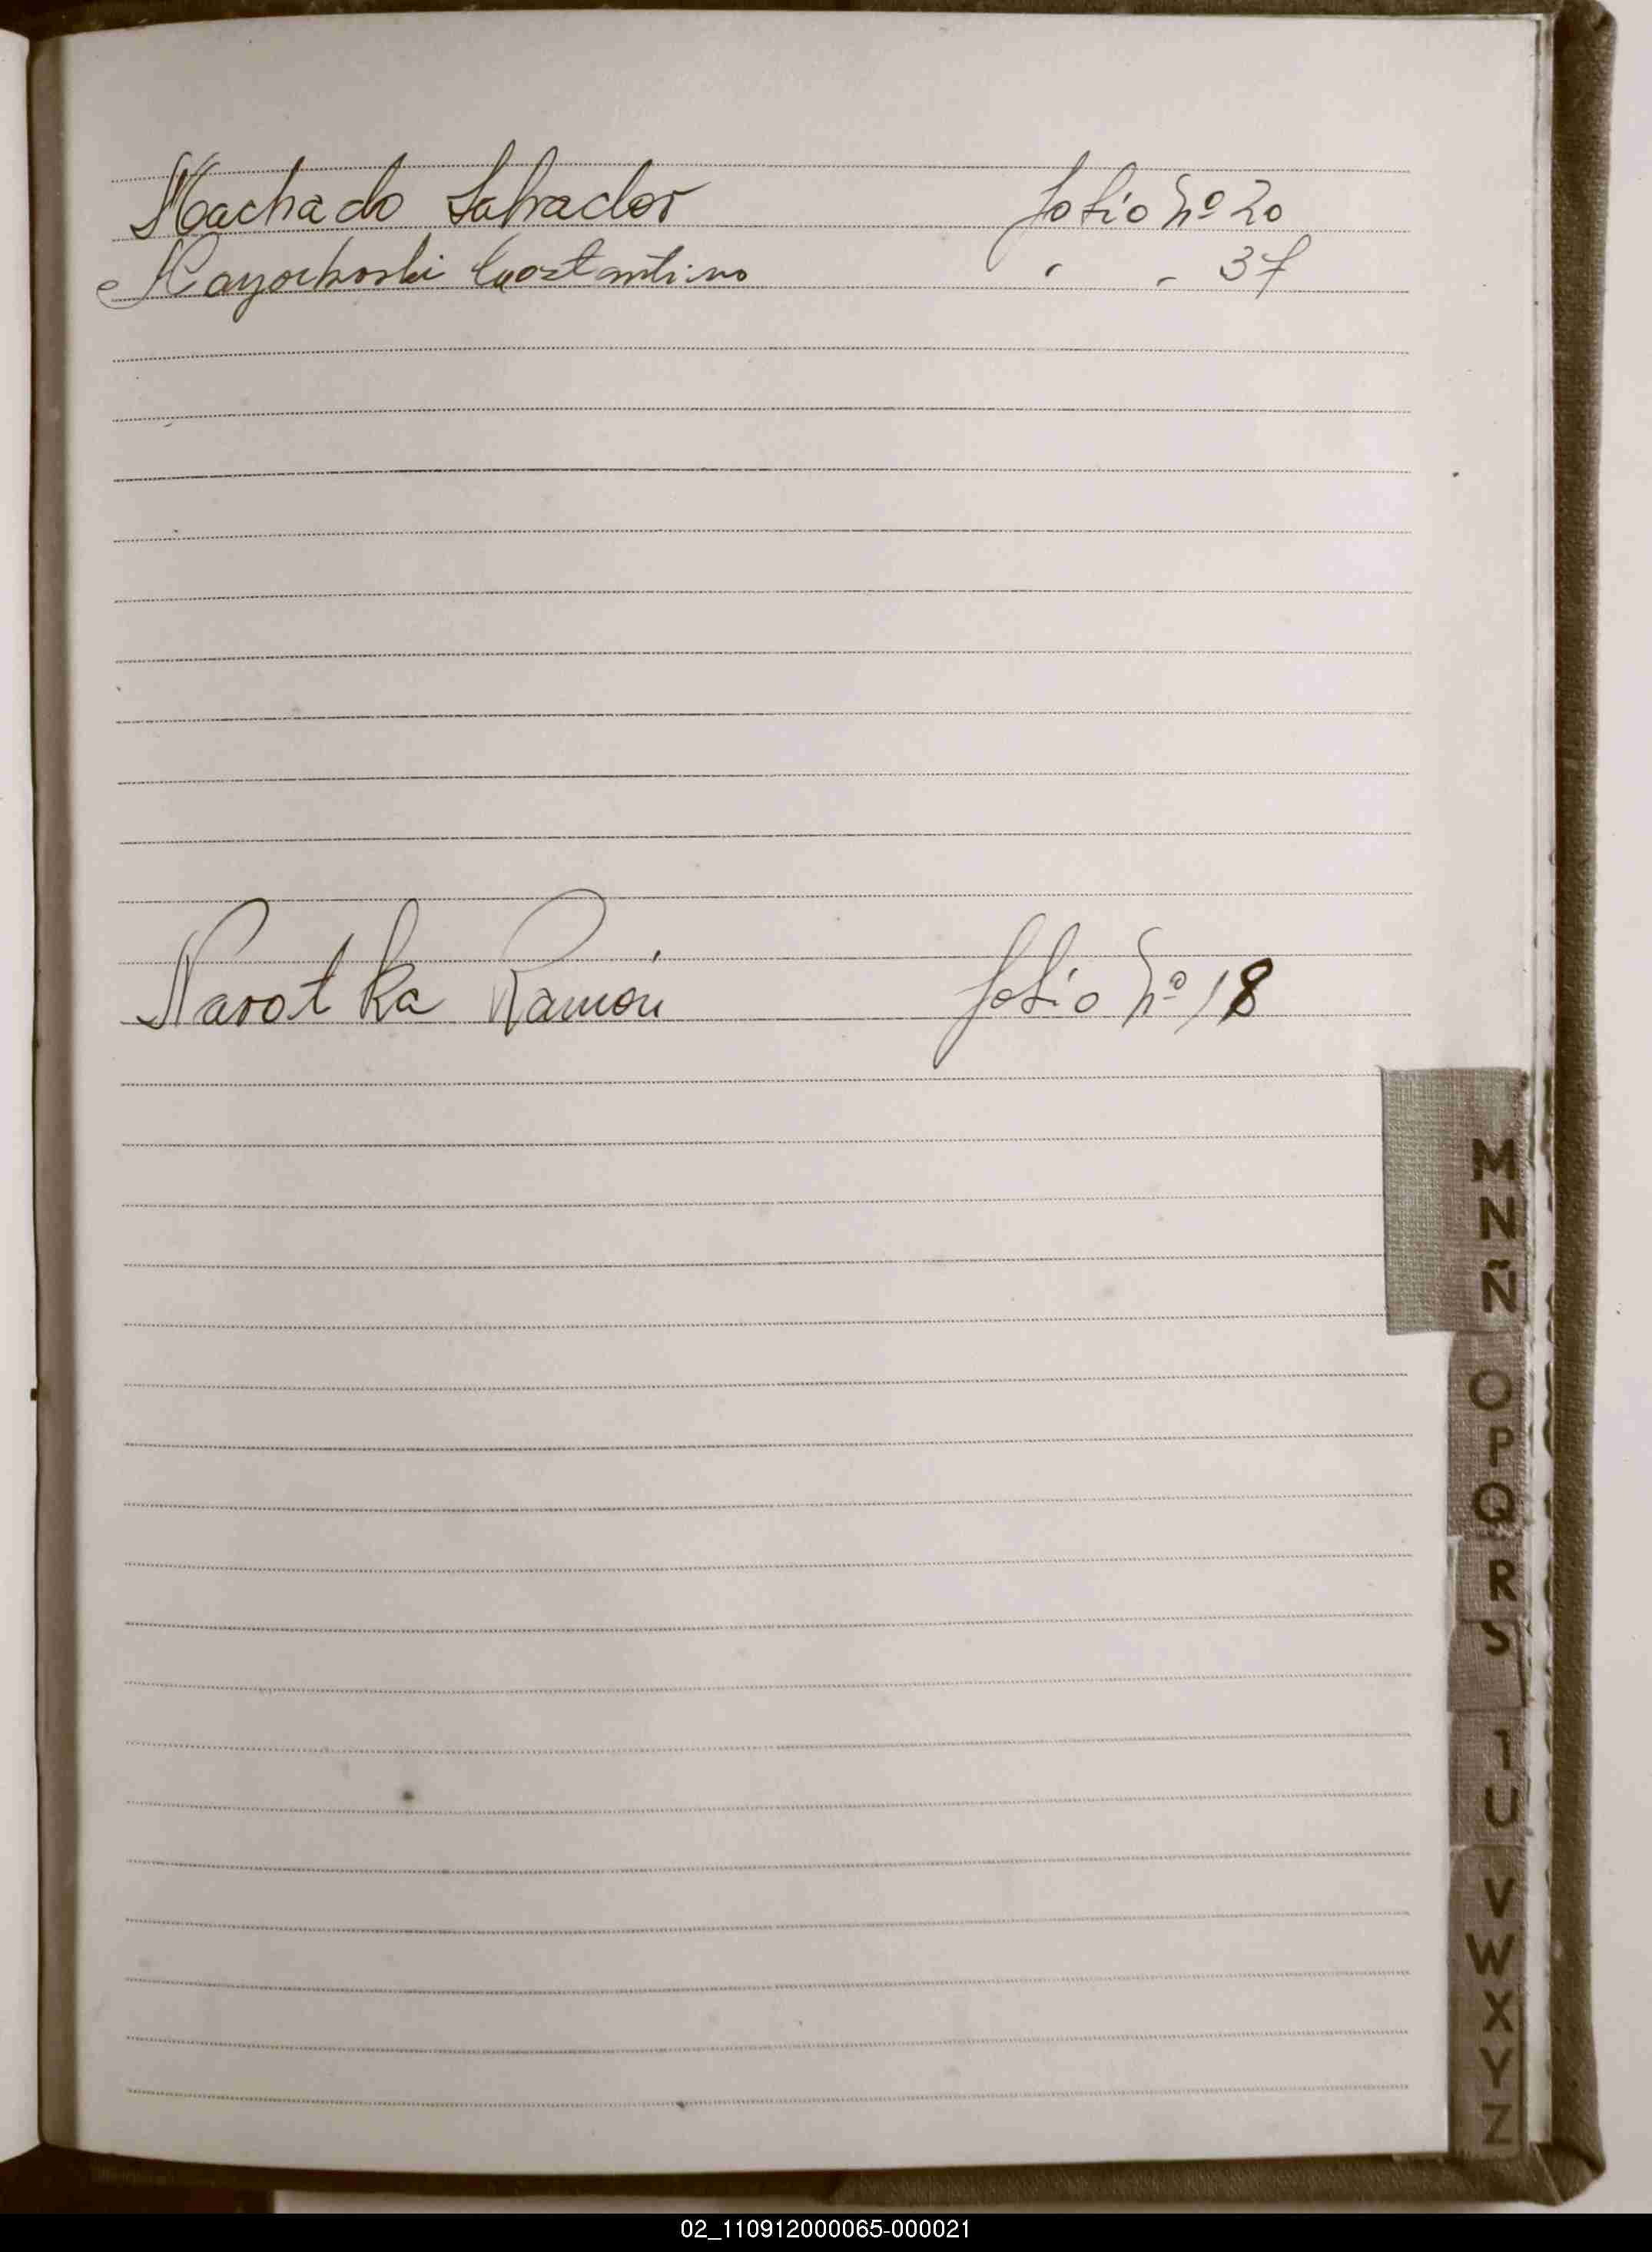 Machado Salvador folio Nº 20
Mayorkoski Costantino " " 37
Navotka Ramón folio Nº 18
M
N
Ñ
O
P
Q
R
S
T
U
V
W
X
Y
Z
02_110912000065-000021